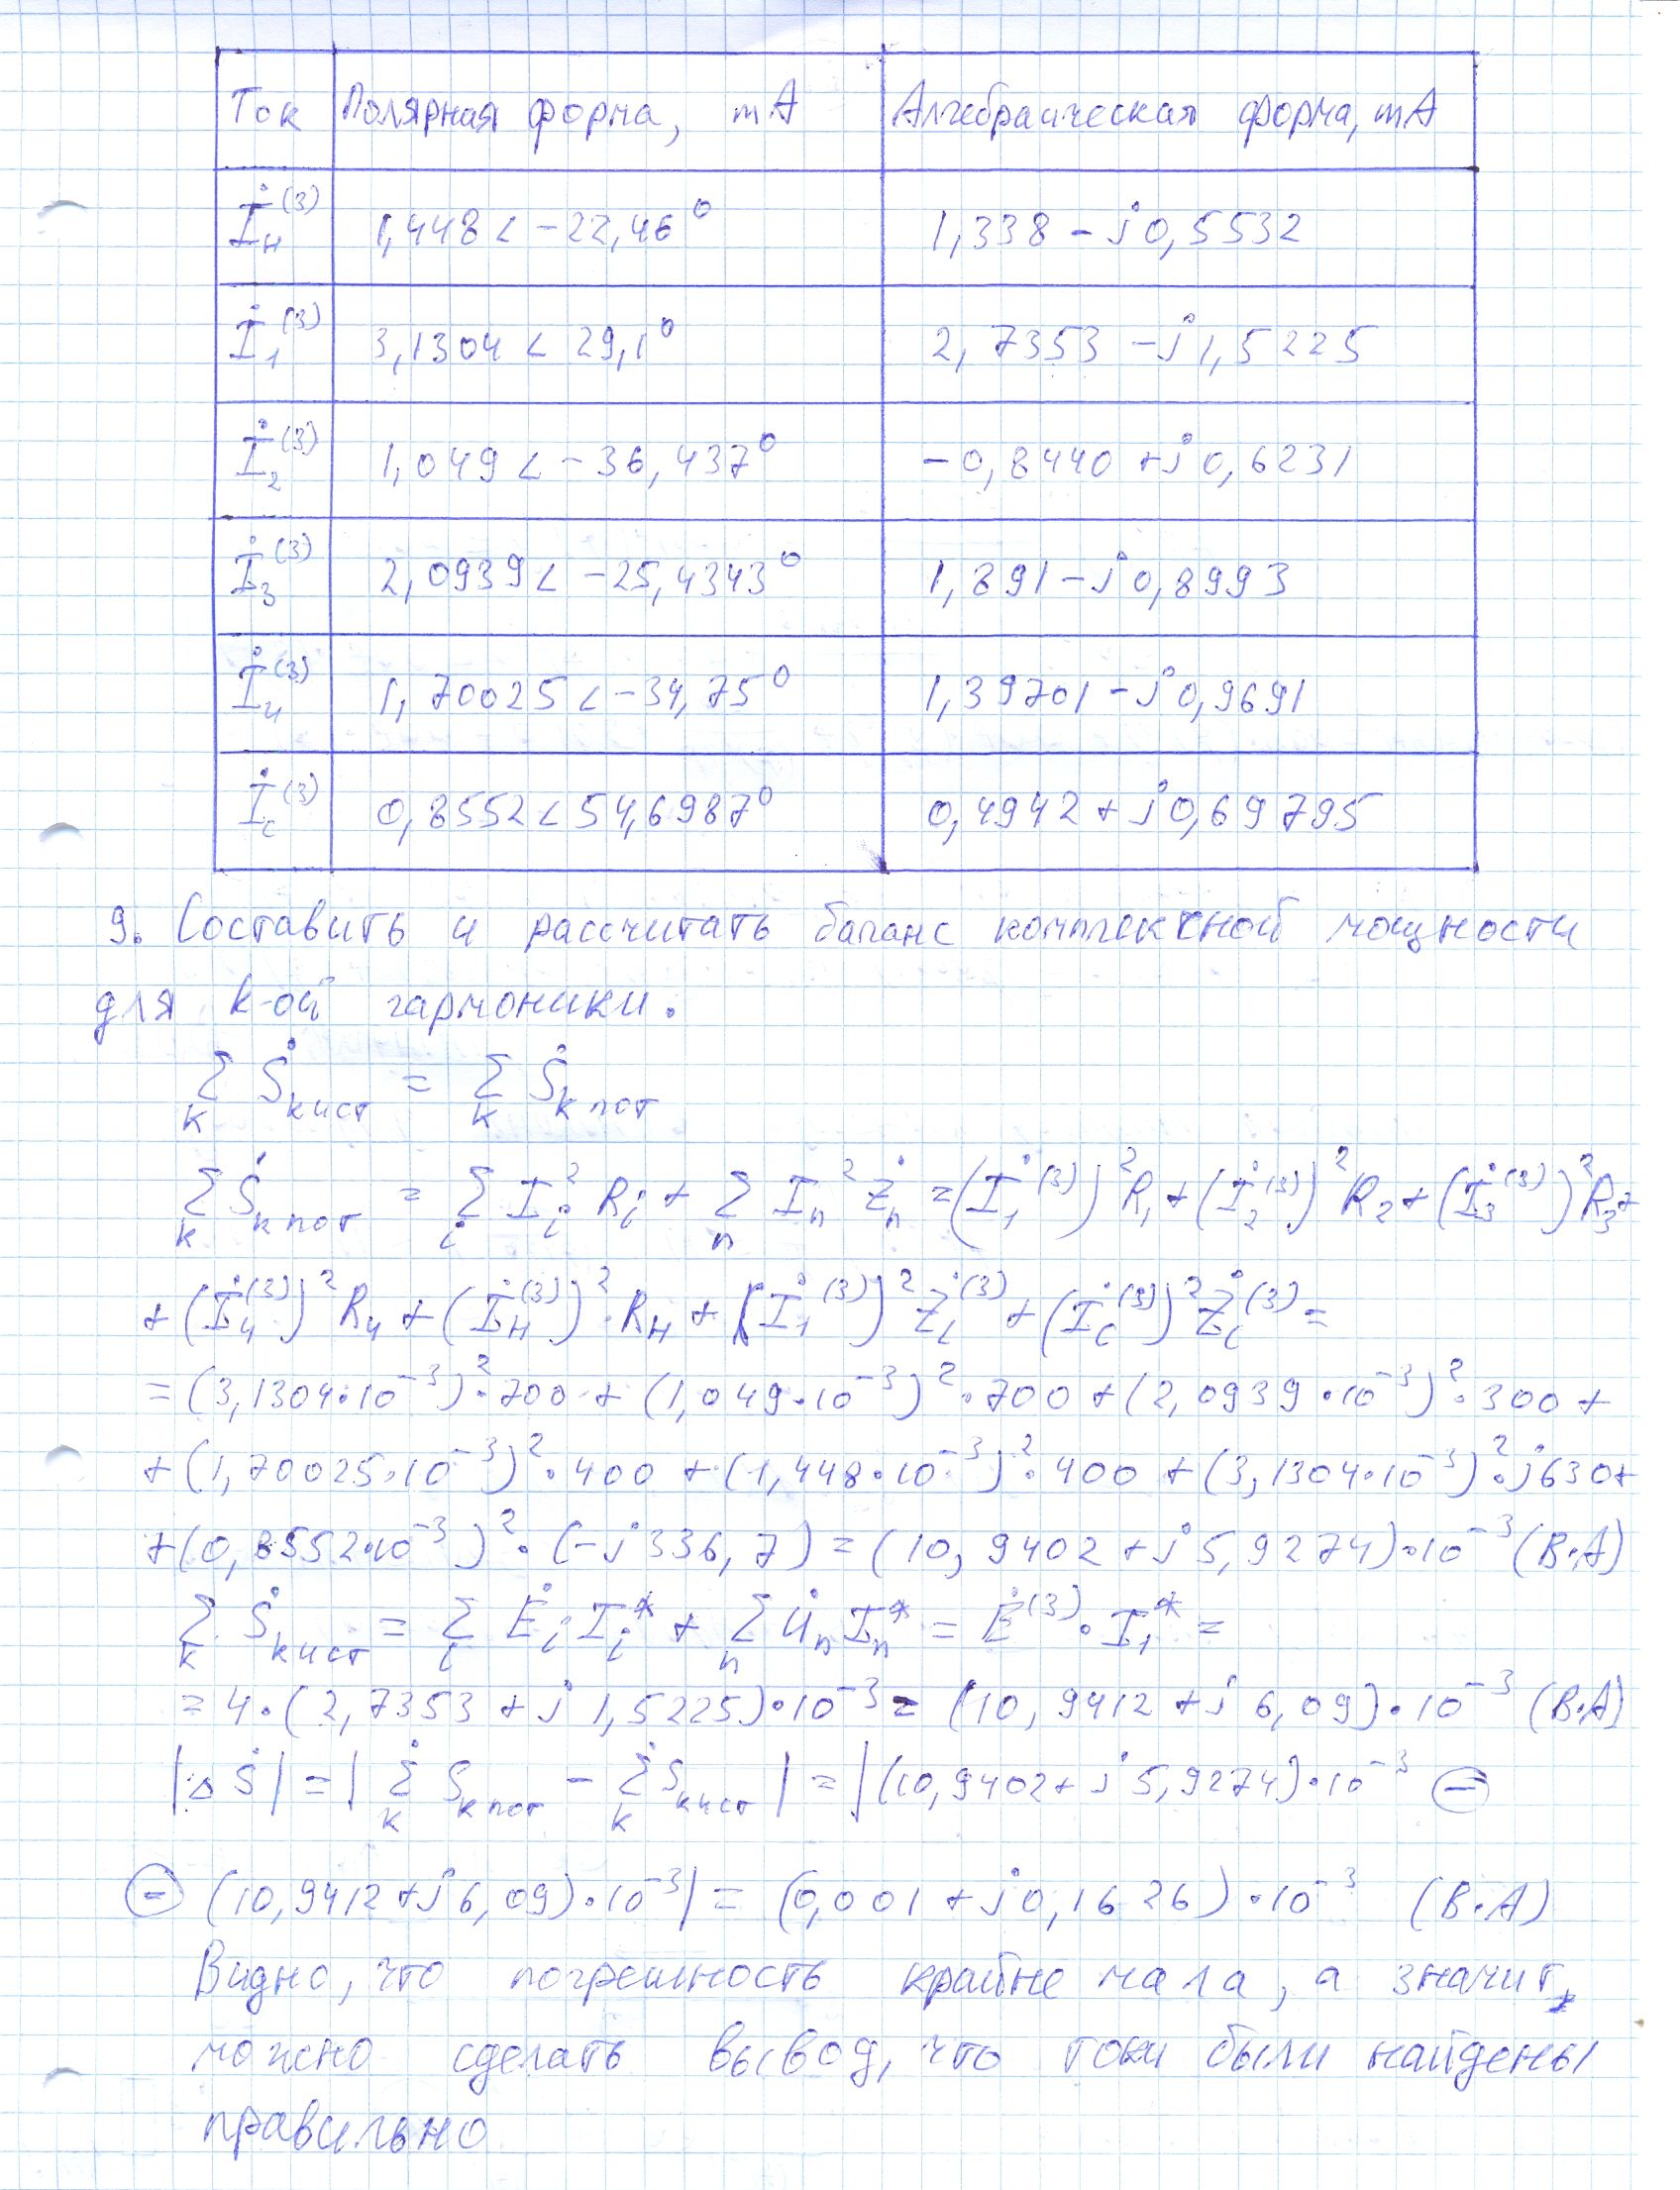 Ток Полярная форма, mA Алгебраическая форма, mA
İн⁽³⁾ 1,448 < -22,46° 1,338 - j0,5532
İ₁⁽³⁾ 3,1304 < 29,1° 2,7353 - j1,5225
İ₂⁽³⁾ 1,049 < -36,437° -0,8440 + j0,6231
İ₃⁽³⁾ 2,0939 < -25,4343° 1,891 - j0,8993
İ₄⁽³⁾ 1,70025 < -34,75° 1,39701 - j0,9691
İc⁽³⁾ 0,8552 < 54,6987° 0,4942 + j0,69795
9. Составить и рассчитать баланс комплексной мощности
для k-ой гармоники.
∑k Ṡk ист = ∑k Ṡk пот
∑k Ṡk пот = ∑i Ii² Ri + ∑n In² Żn = (İ₁⁽³⁾)²R₁ + (İ₂⁽³⁾)²R₂ + (İ₃⁽³⁾)²R₃ +
+ (İ₄⁽³⁾)²R₄ + (İн⁽³⁾)²·Rн + (İ₁⁽³⁾)²ŻL⁽³⁾ + (İc⁽³⁾)²Żc⁽³⁾ =
= (3,1304·10⁻³)²·700 + (1,049·10⁻³)²·700 + (2,0939·10⁻³)²·300 +
+ (1,70025·10⁻³)²·400 + (1,448·10⁻³)²·400 + (3,1304·10⁻³)²·j630 +
+ (0,8552·10⁻³)²·(-j336,7) = (10,9402 + j5,9274)·10⁻³ (В·А)
∑k Ṡk ист = ∑i Ėi Ii* + ∑n U̇n In* = Ė⁽³⁾·I₁* =
= 4·(2,7353 + j1,5225)·10⁻³ = (10,9412 + j6,09)·10⁻³ (В·А)
|ΔṠ| = |∑k Ṡk пот - ∑k Ṡk ист| = |(10,9402 + j5,9274)·10⁻³ ⊖
⊖ (10,9412 + j6,09)·10⁻³| = (0,001 + j0,1626)·10⁻³ (В·А)
Видно, что погрешность крайне мала, а значит,
можно сделать вывод, что токи были найдены
правильно